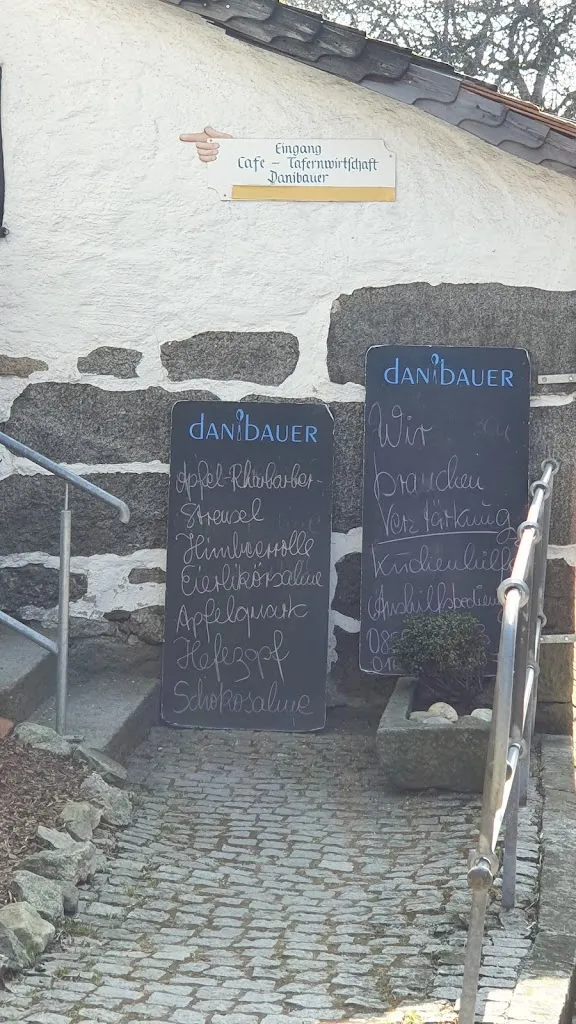 Eingang
Cafe - Tafernwirtschaft
Danibauer
danibauer
Apfel-Rhabarber-
Streusel
Himbeerrolle
Eierlikörsahne
Apfelquark
Hefezopf
Schokosahne
danibauer
Wir
brauchen
Verstärkung
Küchenhilfe